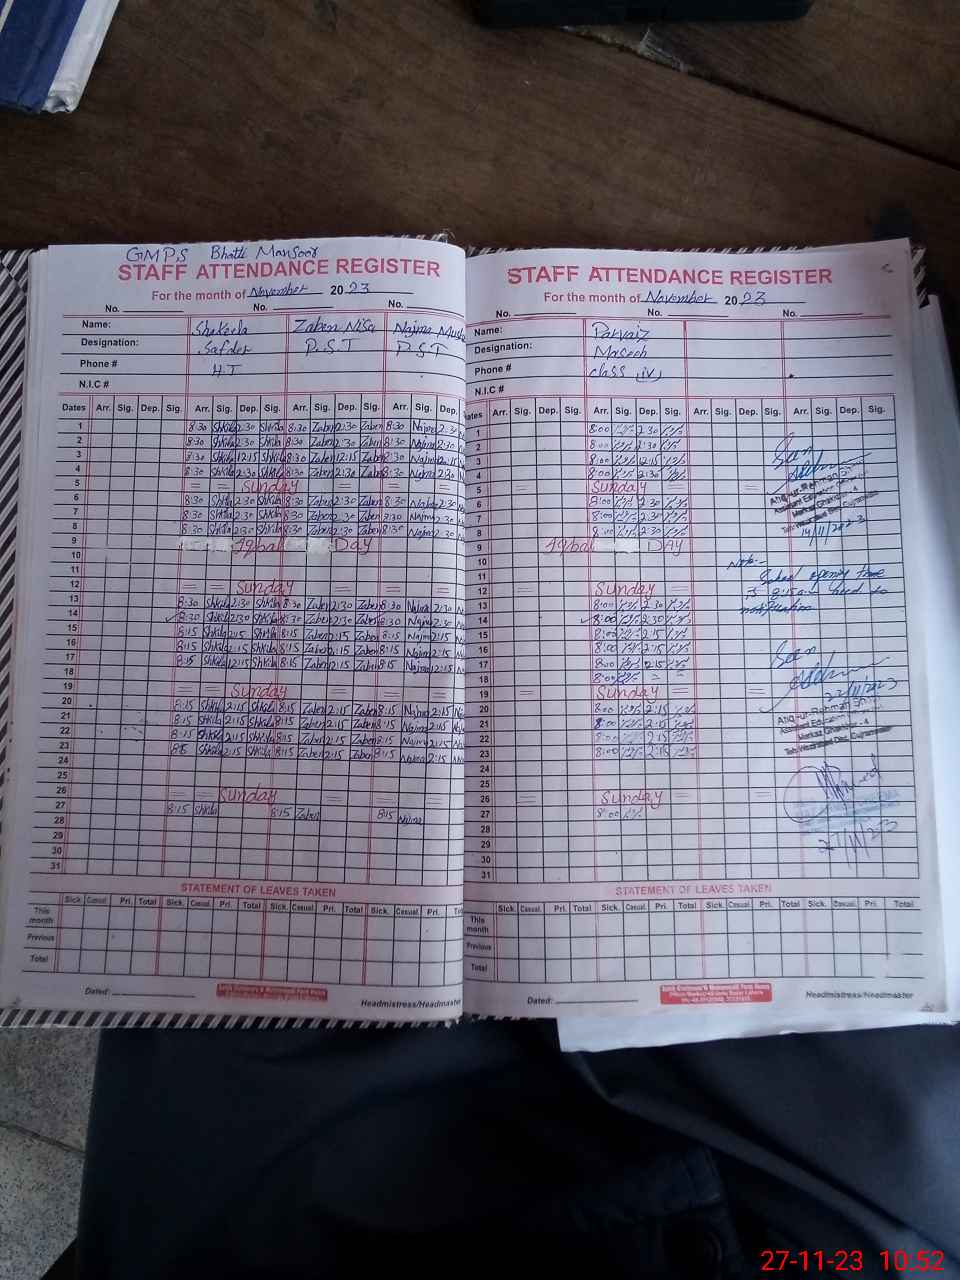 GMPS Bhatti Mansoor
STAFF ATTENDANCE REGISTER
For the month of November 2023
No. No. No.
Name: Shakeela Zaben Nisa Najma Mush
Designation: Safder P.S.T P.S.T
Phone # H.T
N.I.C #
Dates Arr. Sig. Dep. Sig. Arr. Sig. Dep. Sig. Arr. Sig. Dep. Sig. Arr. Sig. Dep.
1 8:30 Shkila 2:30 Shkila 8:30 Zaben 2:30 Zaben 8:30 Najma 2:30
2 8:30 Shkila 2:30 Shkila 8:30 Zaben 2:30 Zaben 8:30 Najma 2:30
3 8:30 Shkila 12:15 Shkila 8:30 Zaben 12:15 Zaben 8:30 Najma 12:15
4 8:30 Shkila 2:30 Shkila 8:30 Zaben 2:30 Zaben 8:30 Najma 2:30
5 = = Sunday = = =
6 8:30 Shkila 2:30 Shkila 8:30 Zaben 2:30 Zaben 8:30 Najma 2:30
7 8:30 Shkila 2:30 Shkila 8:30 Zaben 2:30 Zaben 8:30 Najma 2:30
8 8:30 Shkila 2:30 Shkila 8:30 Zaben 2:30 Zaben 8:30 Najma 2:30
9 Iqbal Day
10
11
12 = = Sunday = = =
13 8:30 Shkila 2:30 Shkila 8:30 Zaben 2:30 Zaben 8:30 Najma 2:30
14 8:30 Shkila 2:30 Shkila 8:30 Zaben 2:30 Zaben 8:30 Najma 2:30
15 8:15 Shkila 2:15 Shkila 8:15 Zaben 2:15 Zaben 8:15 Najma 2:15
16 8:15 Shkila 2:15 Shkila 8:15 Zaben 2:15 Zaben 8:15 Najma 2:15
17 8:15 Shkila 12:15 Shkila 8:15 Zaben 12:15 Zaben 8:15 Najma 12:15
18
19 = = Sunday = = =
20 8:15 Shkila 2:15 Shkila 8:15 Zaben 2:15 Zaben 8:15 Najma 2:15
21 8:15 Shkila 2:15 Shkila 8:15 Zaben 2:15 Zaben 8:15 Najma 2:15
22 8:15 Shkila 2:15 Shkila 8:15 Zaben 2:15 Zaben 8:15 Najma 2:15
23 8:15 Shkila 2:15 Shkila 8:15 Zaben 2:15 Zaben 8:15 Najma 2:15
24
25
26 = = Sunday = = =
27 8:15 Shkila 8:15 Zaben 8:15 Najma
28
29
30
31
STATEMENT OF LEAVES TAKEN
Sick. Casual. Pri. Total Sick. Casual. Pri. Total Sick. Casual. Pri. Total Sick. Casual. Pri. Total
This month
Previous
Total
Dated:
Headmistress/Headmaster
STAFF ATTENDANCE REGISTER
For the month of November 2023
No. No. No.
Name: Parvaiz
Designation: Maseeh
Phone # class (iv)
N.I.C #
Dates Arr. Sig. Dep. Sig. Arr. Sig. Dep. Sig. Arr. Sig. Dep. Sig. Arr. Sig. Dep. Sig.
1 8:00 2:30
2 8:00 2:30
3 8:00 12:15
4 8:00 2:30
5 = Sunday = =
6 8:00 2:30
7 8:00 2:30
8 8:00 2:30
9 Iqbal DAY
10
11
12 = Sunday = =
13 8:00 2:30
14 8:00 2:30
15 8:00 2:15
16 8:00 2:15
17 8:00 12:15
18 8:00
19 = Sunday = =
20 8:00 2:15
21 8:00 2:15
22 8:00 2:15
23 8:00 2:15
24
25
26 = Sunday = =
27 8:00
28
29
30
31
Seen
Atiq-ur-Rehman
Assistant Education
Markaz Ghakhar - 4
14/11/2023
Note:-
School opening time
is 8:15 a.m
notification
Seen
22/11/2023
Atiq-ur-Rehman
Assistant Education
Markaz Ghakhar - 4
27/11/23
STATEMENT OF LEAVES TAKEN
Sick. Casual. Pri. Total Sick. Casual. Pri. Total Sick. Casual. Pri. Total Sick. Casual. Pri. Total
This month
Previous
Total
Dated:
Headmistress/Headmaster
27-11-23 10:52